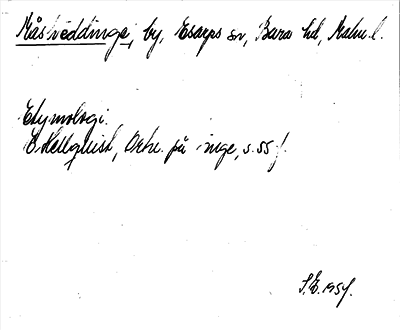 Måsveddinge, by, Esarps sn, Bara hd, Malm. l.
Etymologi.
E Hellquist, Ortn. på -inge, s. 55 f.
S.E. 1954.